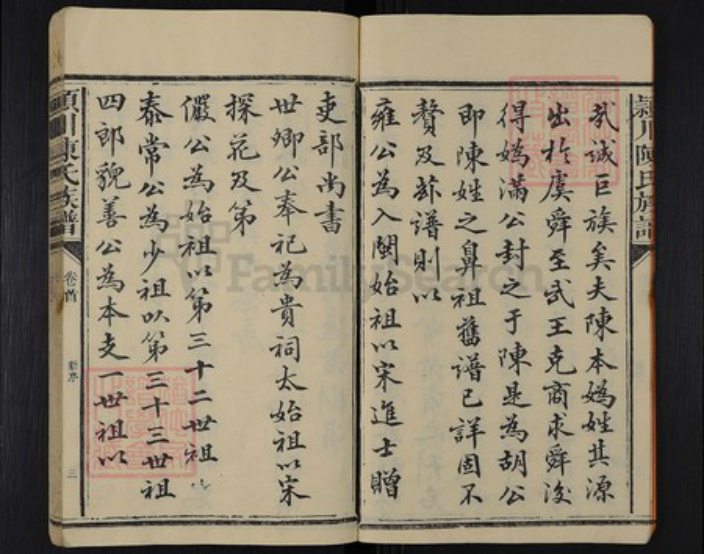 潁川陳氏族譜
哉誠巨族矣夫陳本媯姓其源
出於虞舜至武王克商求舜後
得媯滿公封之于陳是為胡公
即陳姓之鼻祖舊譜已詳固不
贅及菻譜則以
雍公為入閩始祖以宋進士贈
吏部尚書
世卿公奉祀為貴祠太始祖以宋
探花及第
儼公為始祖以第三十二世祖
泰常公為少祖以第三十三世祖
四郎貌善公為本支一世祖以
潁川陳氏族譜
卷首
新序
三
FamilySearch